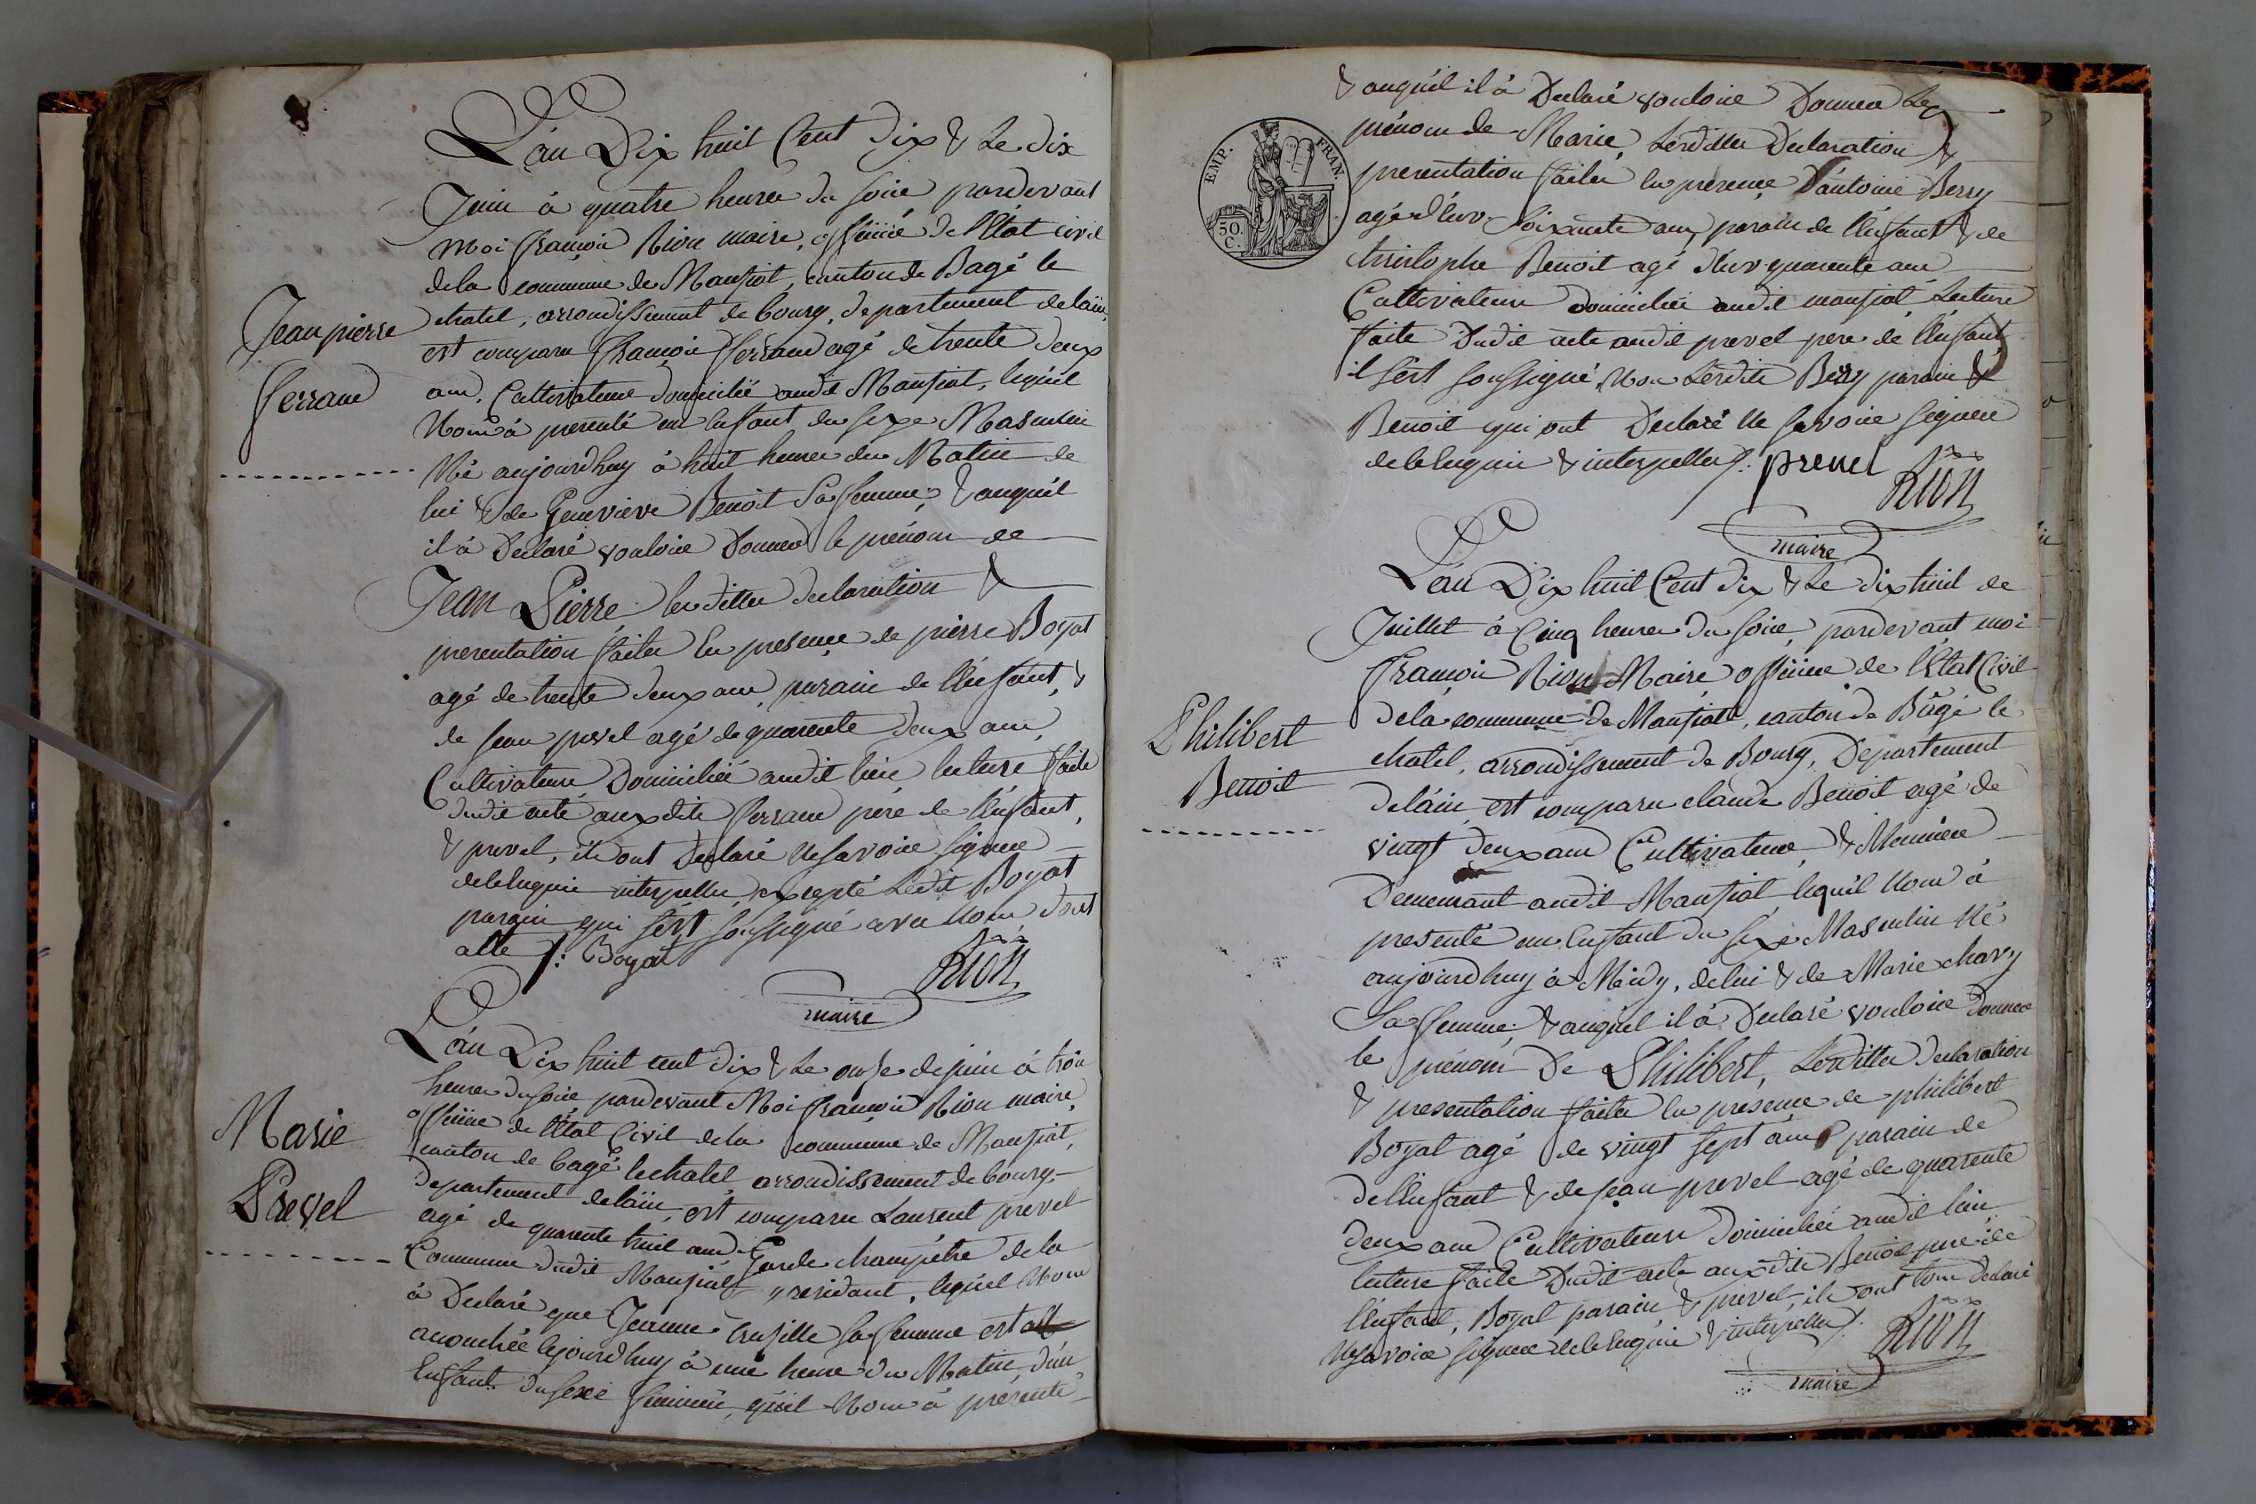 L'an Dix huit Cent dix & Le dix
Juin à quatre heures du soir pardevant
moi françois Rion maire, officié de l'Etat civil
dela commune de Mansiat, canton de Bagé le
chatel, arrondissement de bourg, departement delain,
est comparu françois ferrand agé de trente deux
ans, Cultivateur domicilié audit Mansiat, lequel
Nous à presenté un Enfant du sexe Masculin
Né aujourdhuy à huit heures du Matin de
lui & de Geneviève Benoit Sa femme; & auquel
il à Declaré vouloir Donner le prénom de
Jean Pierre lesdittes declaration &
presentation faites En presence de pierre Boyat
agé de trente deux ans, parain de l'Enfant, &
de jean prevel agé de quarente deux ans,
Cultivateurs Domiciliés audit lieu lecture faite
dudit acte auxdits ferrand père de l'Enfant,
& prevel, ils ont declaré Ne savoir signer
de ce enquis interpellés, excepté Ledit Boyat
parain qui s'est soussigné avec Nous dont
acte /: Boyat
Rion
maire
Jean pierre
ferrand
L'an Dix huit cent dix & Le onse de juin à trois
heures du soir pardevant Moi françois Rion maire,
officier de l'Etat Civil de la commune de Mansiat,
canton de bagé lechatel arrondissement de bourg,
departement delain, est comparu Laurent prevel
agé de quarente huit ans Garde champêtre de la
Commune dudit Mansiat y residant, lequel Nous
à Declaré que Jeanne Crusille sa femme est
acouchée cejourdhuy à une heure du Matin, d'un
Enfant du sexe feminin, qu'il Nous à presenté
Marie
Prevel
& auquel il à Declaré vouloir Donner Le
prénom de Marie, Lesdittes Declaration &
presentation faites En presence d'antoine Berry
agé d'Env. Soixante ans, parain de l'Enfant & de
christophe Benoit agé d'Env quarente ans
Cultivateurs domiciliés audit mansiat, Lecture
faite Dudit acte audit prevel pere de l'Enfant
il s'est soussigné, Non Lesdits Berry parain &
Benoit qui ont Declaré Ne savoir signer
de ce enquis & interpellés /. prevel
Rion
maire
EMP. FRAN.
50.
C.
L'an Dix huit Cent dix & Le dix huit de
Juillet à Cinq heures du soir, pardevant moi
françois Rion Maire officier de l'Etat Civil
dela commune de Mansiat, canton de Bâgé le
chatel, arrondissement de Bourg, Departement
delain, est comparu claude Benoit agé de
vingt deux ans Cultivateur, & Meunier
Demeurant audit Mansiat lequel Nous à
presenté un Enfant du sexe Masculin Né
aujourdhuy à Midy, de lui & de Marie chavy
Sa femme; & auquel il à Declaré vouloir Donner
le prénom De Philibert, Lesdittes declaration
& presentation faites En presence de philibert
Boyat agé de vingt sept ans parain de
de l'Enfant & de jean prevel agé de quarente
deux ans Cultivateurs Domiciliés audit lieu
lecture faite Dudit acte auxdits Benoit pere de
l'Enfant, Boyat parain & prevel, ils ont tous declaré
Ne savoir signer de ce Enquis & interpellés /.
Rion
maire
Philibert
Benoit